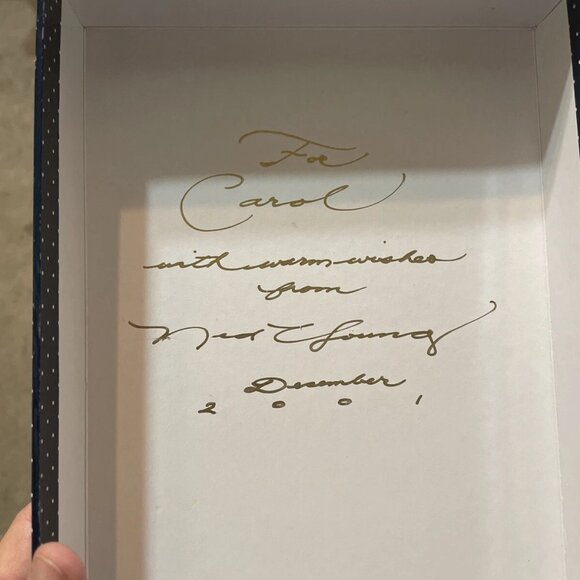 For
Carol
with warm wishes
from
Ned Young
December
2001